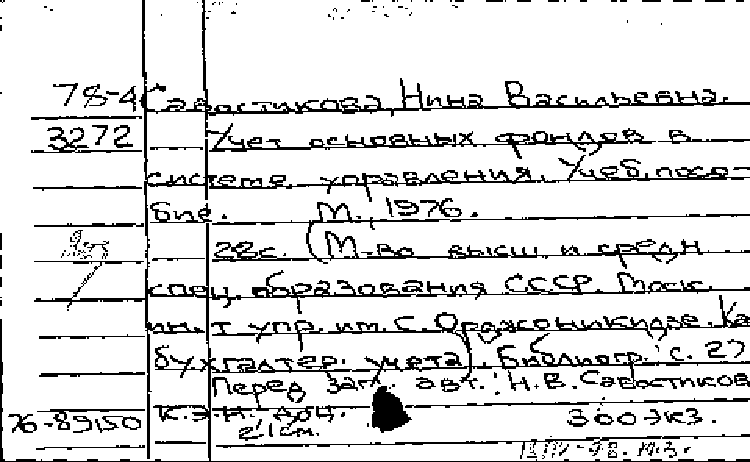 78-4 Савостикова, Нина Васильевна.
3272 Учет основных фондов в
системе управления. Учеб. посо-
бие. М., 1976.
22с. (М-во высш. и средн.
спец. образования СССР. Моск.
ин-т упр. им. С. Орджоникидзе. Ка
бухгалтер. учета). Библиогр.: с. 27
Перед загл. авт.: Н.В. Савостиков
76-89150 к.э.н. доц.
21см. 300 экз.